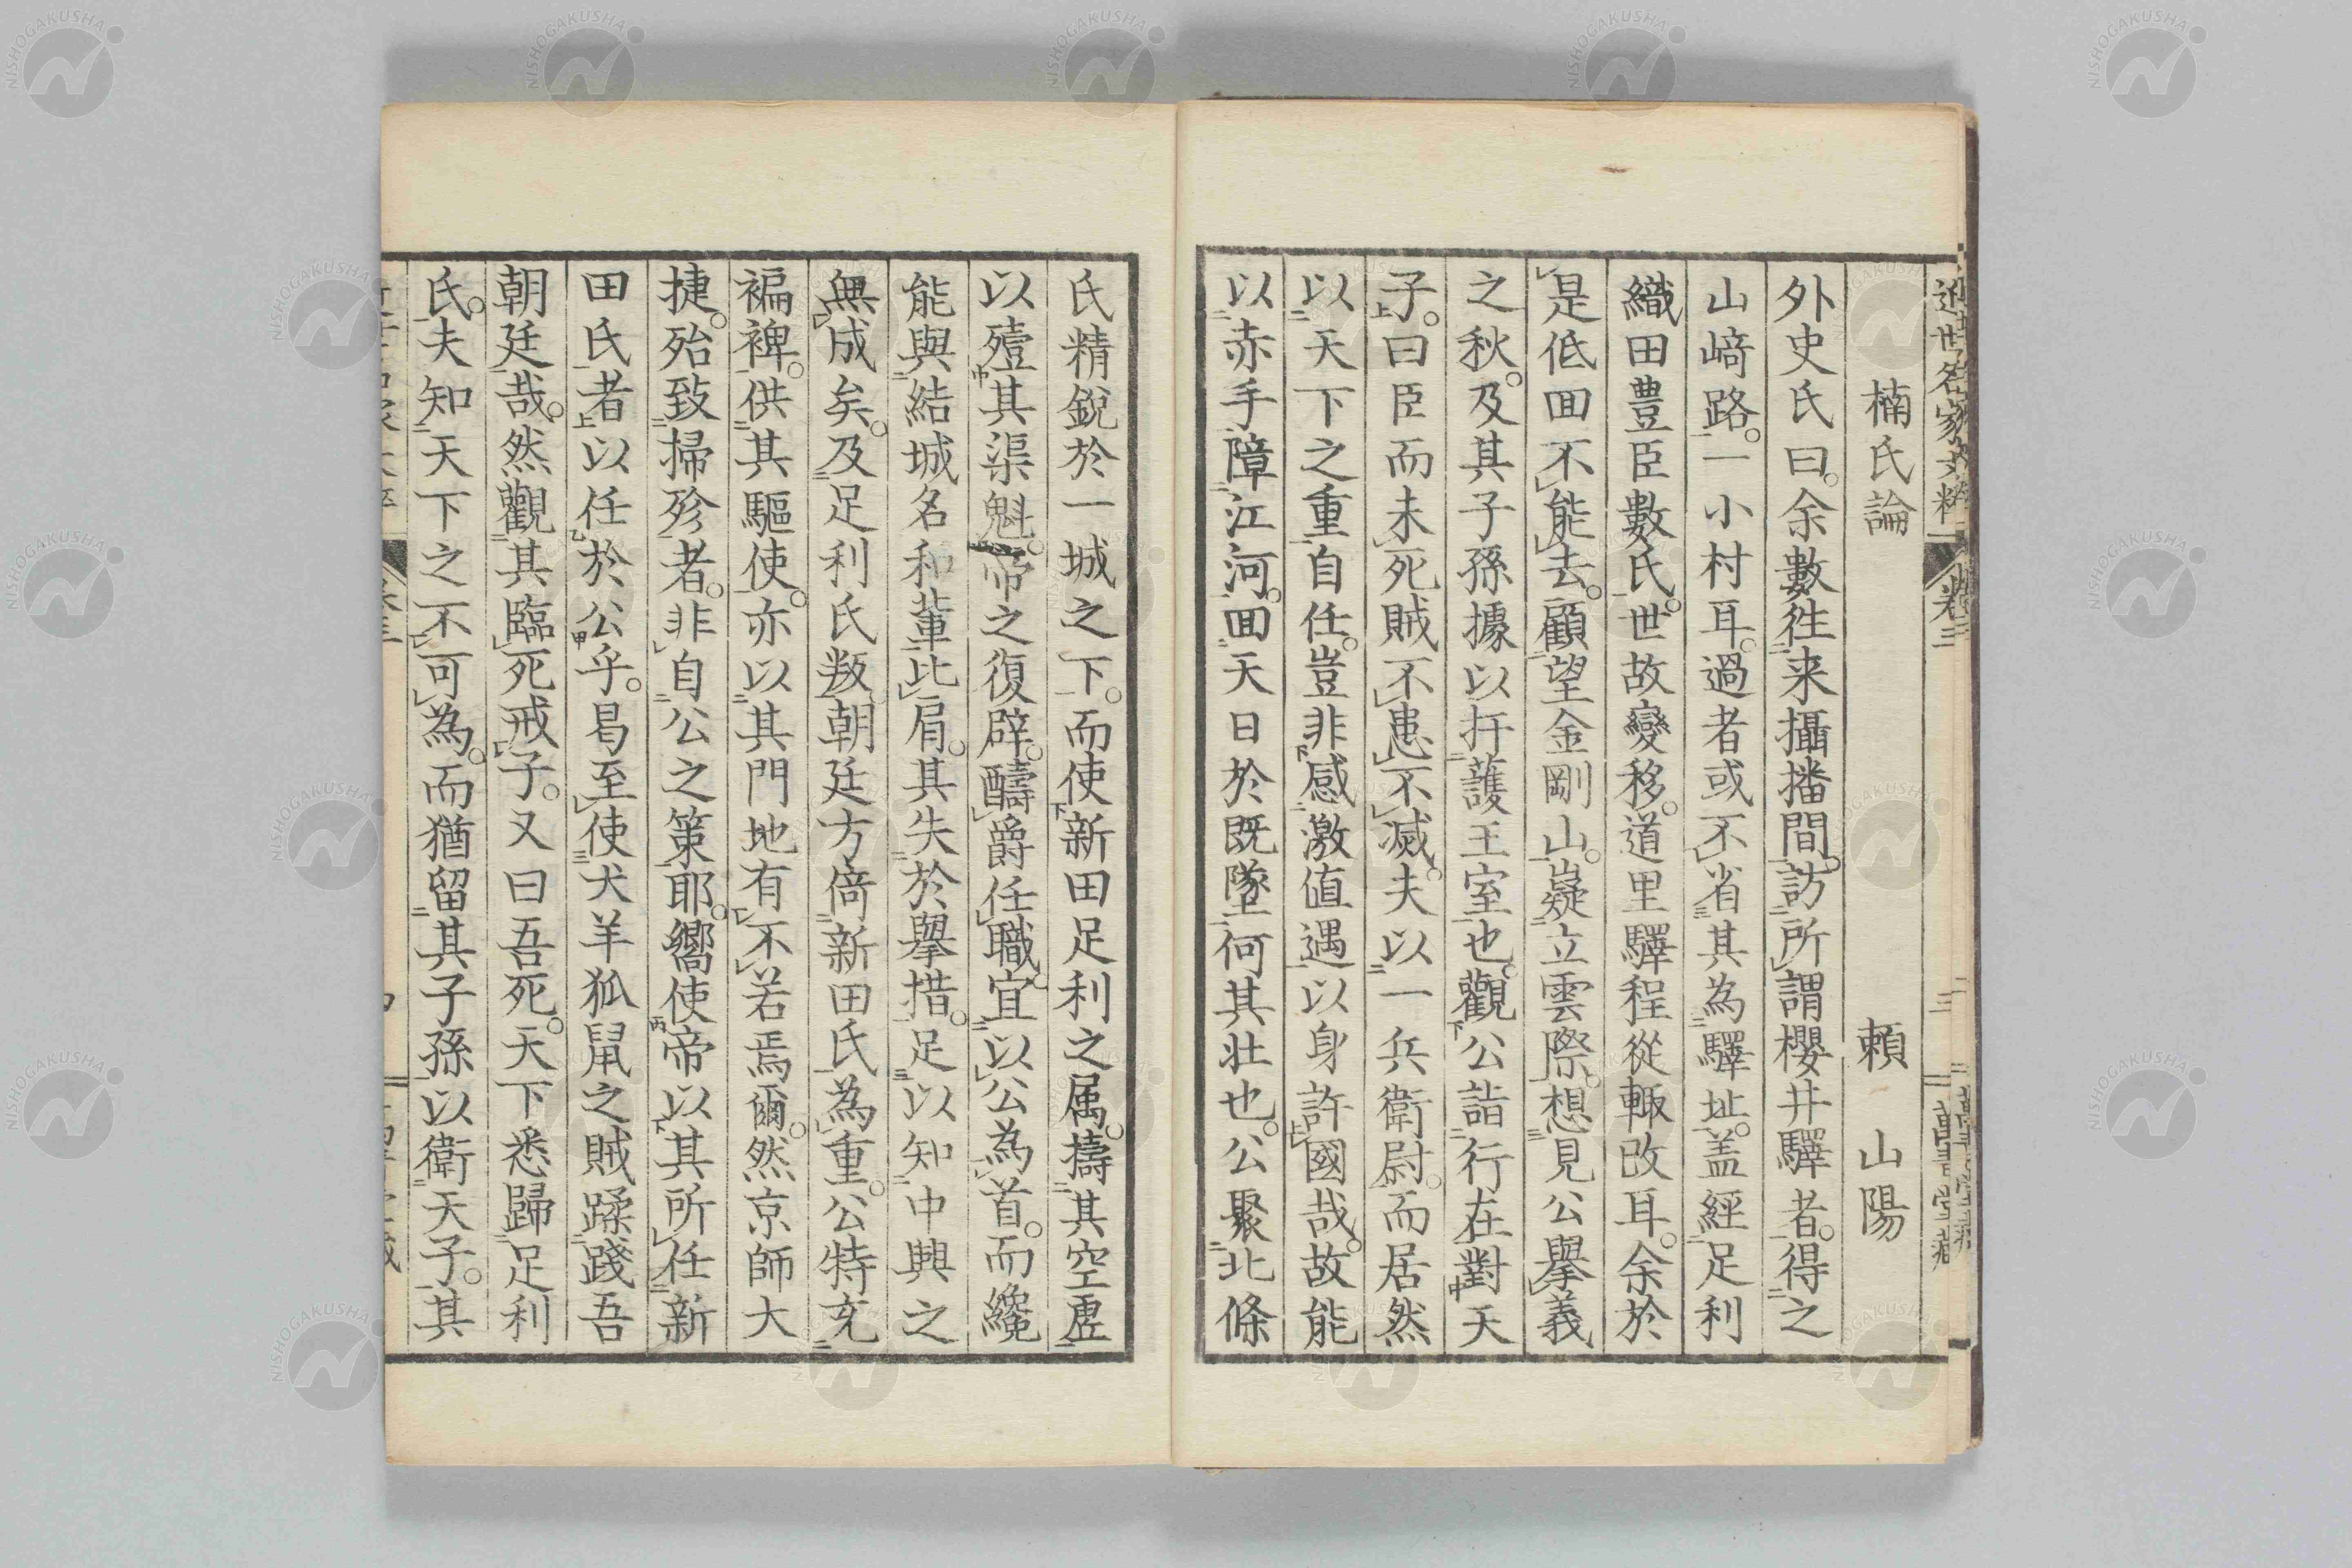 近世名家文粹 卷三 三 萬書堂藏
楠氏論 賴 山陽
外史氏曰。余數徃来攝播間。訪所謂櫻井驛者。得之
山﨑路。一小村耳。過者或不省其為驛址。盖經足利
織田豊臣數氏。世故變移。道里驛程從輙改耳。余於
是低回不能去。顧望金剛山。嶷立雲際。想見公擧義
之秋。及其子孫據以扞護王室也。觀公詣行在對天
子。曰臣而未死賊不患不滅。夫以一兵衛尉。而居然
以天下之重自任。豈非感激値遇以身許國哉。故能
以赤手障江河。回天日於既墜。何其壮也。公聚北條
氏精銳於一城之下。而使新田足利之属。擣其空虚
以殪其渠魁。帝之復辟。酬爵任職。宜以公為首。而纔
能與結城名和軰比肩。其失於擧措。足以知中興之
無成矣。及足利氏叛朝廷方倚新田氏為重。公特充
褊裨。供其驅使。亦以其門地有不若焉爾。然京師大
捷。殆致掃殄者。非自公之策耶。嚮使帝以其所任新
田氏者以任於公乎。曷至使犬羊狐鼠之賊蹂踐吾
朝廷哉。然觀其臨死戒子。又曰吾死。天下悉歸足利
氏。夫知天下之不可為。而猶留其子孫以衛天子。其